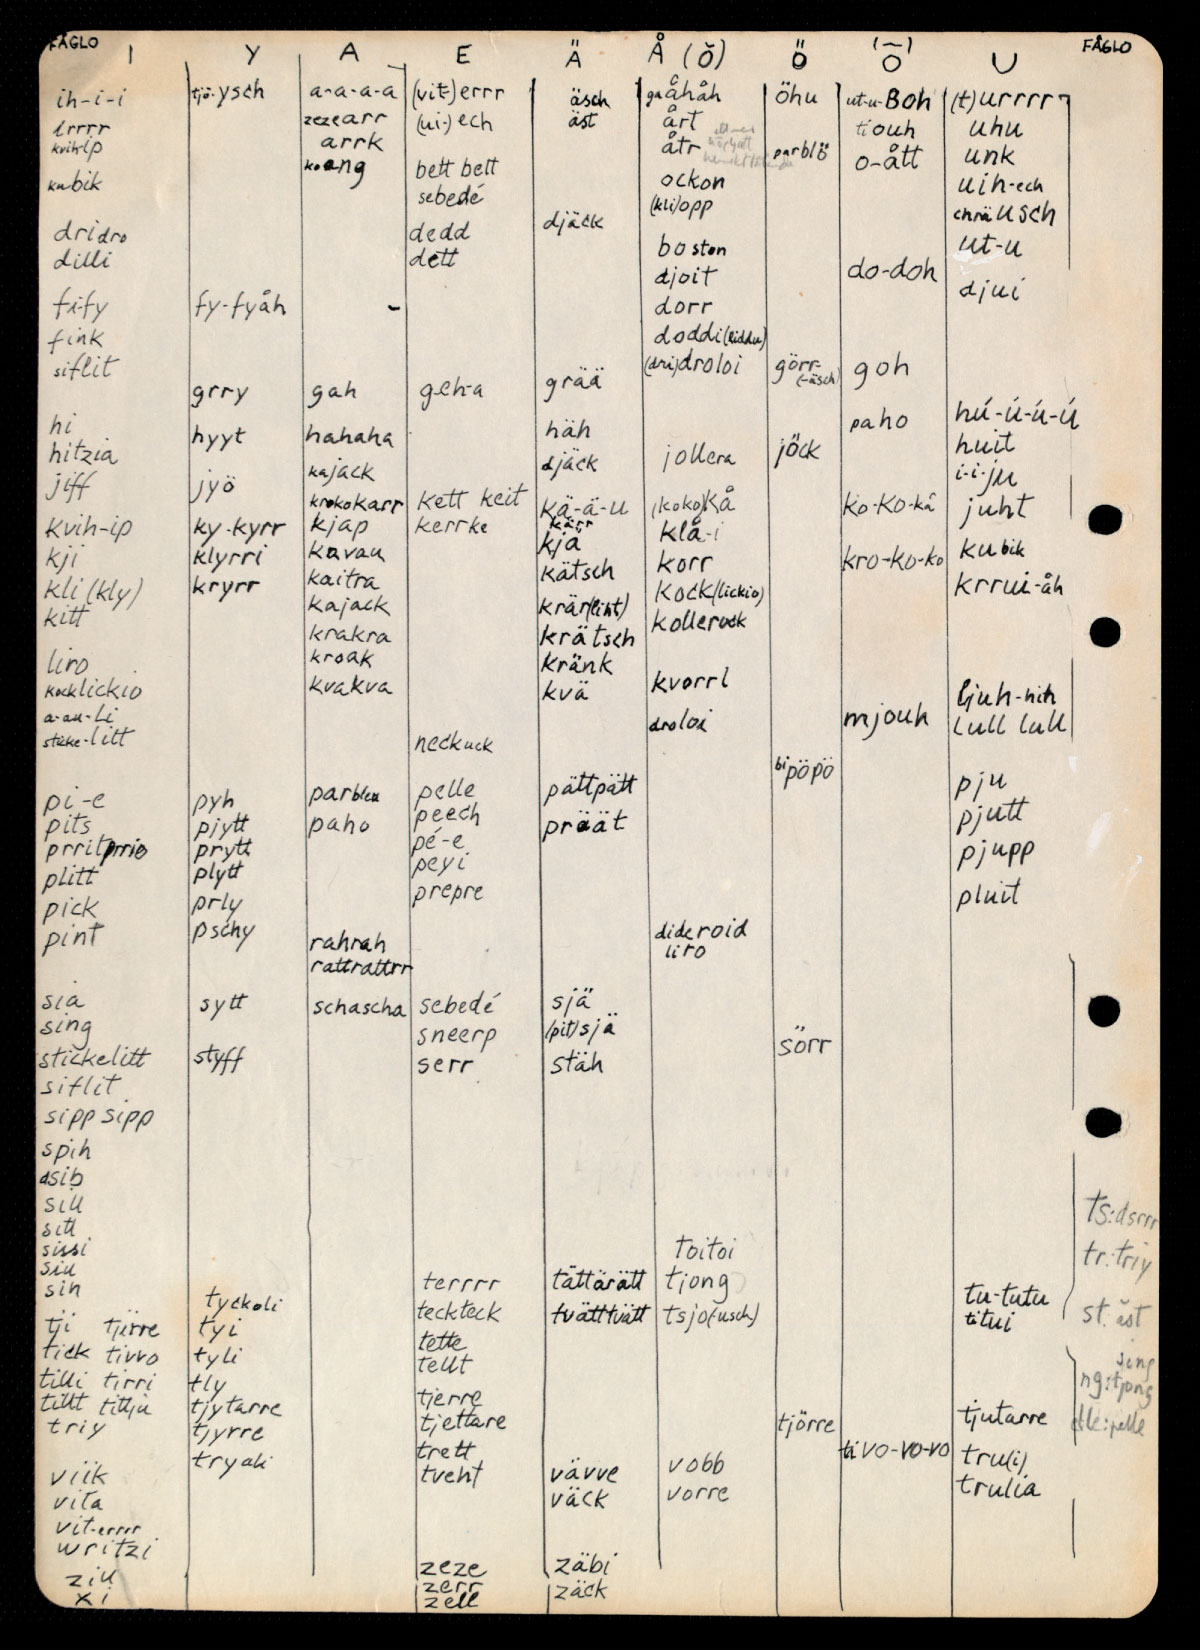 FÅGLO
I
ih-i-i
irrrr
kvih-ip
kubik
dridro
dilli
fi-fy
fink
siflit
hi
hitzia
jiff
kvih-ip
kji
kli (kly)
kitt
liro
kocklickio
a-au-li
sticke-litt
pi-e
pits
prritprrio
plitt
pick
pint
sia
sing
stickelitt
siflit
sipp sipp
spih
dsib
sill
sitt
sissi
siu
sin
tji tjirre
tick tivvo
tilli tirri
titt titju
triy
viik
vita
vit-errrr
writzi
ziu
xi
Y
tjö-ysch
fy-fyåh
grry
hyyt
jyö
ky-kyrr
klyrri
kryrr
pyh
pjytt
prytt
plytt
prly
pschy
sytt
styff
tyckoli
tyi
tyli
tly
tjytarre
tjyrre
tryoli
A
a-a-a-a
zezearr
arrk
koang
-
gah
hahaha
kajack
krokokarr
kjap
kavau
kaitra
kajack
krakra
kroak
kvakva
parbleu
paho
rahrah
rattrattrr
schascha
E
(vit-)errr
(ui-)ech
bett bett
sebedé
dedd
dett
geh-a
kett keit
kerrke
neckuck
pelle
peech
pé-e
peyi
prepre
sebedé
sneerp
serr
terrrr
teckteck
tette
tellt
tjerre
tjettare
trett
tveht
zeze
zerr
zell
Ä
äsch
äst
djäck
grää
häh
djäck
kä-ä-u
kärr
kjä
kätsch
krär(lint)
krätsch
kränk
kvä
pättpätt
präät
sjä
(pit)sjä
stäh
tättärätt
tvätttvätt
vävve
väck
zäbi
zäck
Å (ŏ)
gaåhåh
årt
åtr
ockon
(kli)opp
boston
djoit
dorr
doddi(liddu)
(dri)droloi
jollera
(koko)kå
klå-i
korr
kock(lickio)
kollerock
kvorrl
droloi
dideroid
liro
toitoi
tjong
tsjo(-usch)
vobb
vorre
Ö
öhu
parblö
görr-
(-äsch)
jöck
bipöpö
sörr
tjörre
(—)
O
ut-u-Boh
tiouh
o-ått
do-doh
goh
paho
ko-ko-kå
kro-ko-ko
mjouh
tivo-vo-vo
U
(t)urrrr
uhu
unk
uih-ech
chräusch
ut-u
djui
hú-ú-ú-ú
huit
i-i-ju
juht
kubik
krrui-åh
ljuh-hih
lull lull
pju
pjutt
pjupp
pluit
tu-tutu
titui
tjutarre
tru(i)
trulia
FÅGLO
ts:dsrrr
tr:triy
st:äst
sing
ng:tjong
elle:pelle